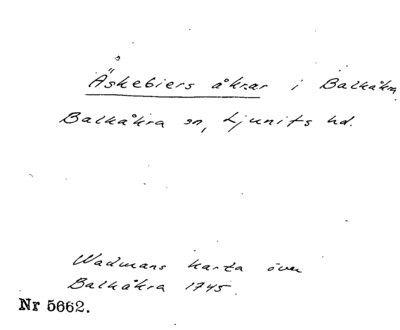 Äskebiers åkrar i Balkåkra
Balkåkra sn, Ljunits hd.
Wadmans karta över
Balkåkra 1745.
Nr 5662.